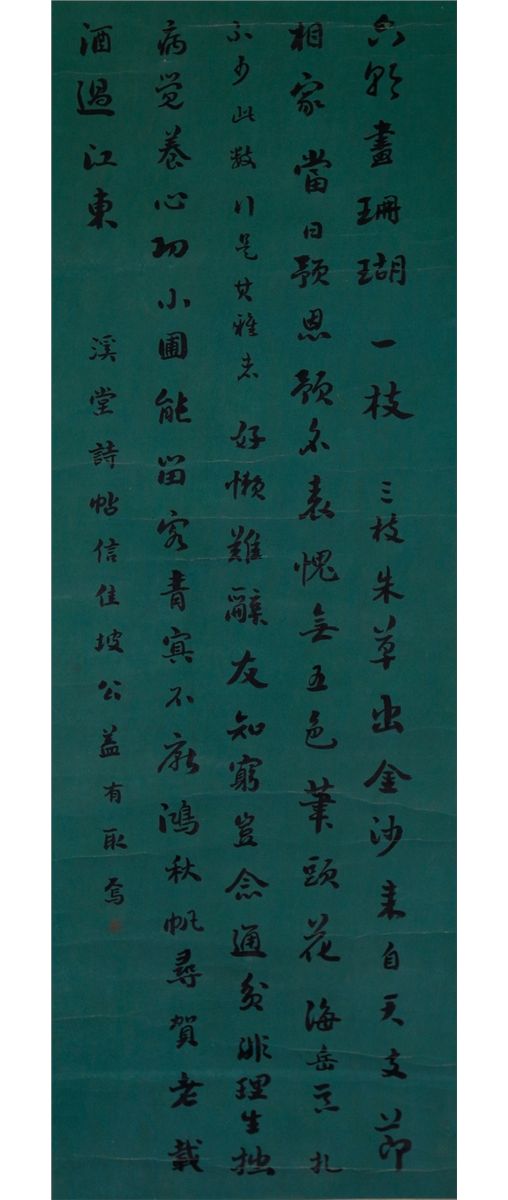 六朝畫珊瑚一枝 三枝朱草出金沙来自天支節
相家當日預恩預名表愧無五色筆頭花 海岳札
不少此數行是其雅者 好懶難辭友知窮豈念通貧非理生拙
病覺養心功小圃能留客青冥不厭鴻秋帆尋賀老載
酒過江東 溪堂詩帖信佳坡公蓋有取焉